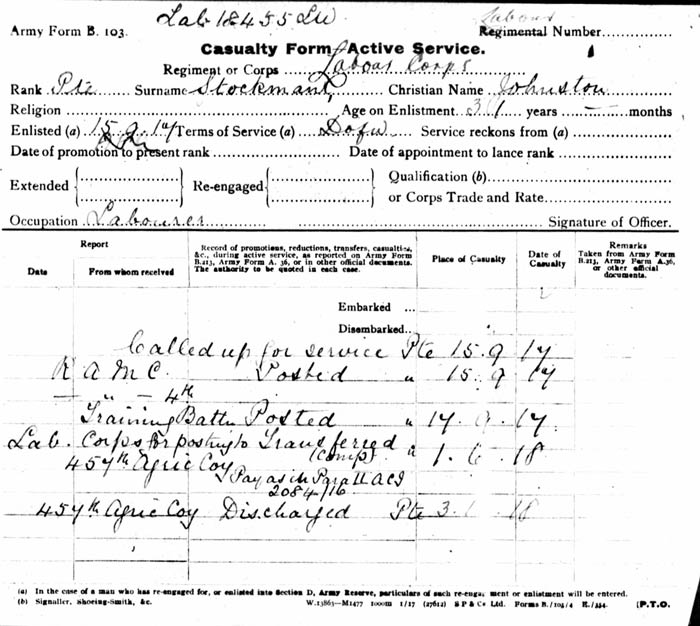 Army Form B. 103.
Labour
Regimental Number
Casualty Form—Active Service.
Regiment or Corps Labour Corps
Rank Pte Surname Stockman Christian Name Johnston
Religion Age on Enlistment 31 years — months
Enlisted (a) 15.9.17 Terms of Service (a) Dofw Service reckons from (a)
Date of promotion to present rank Date of appointment to lance rank
Extended Re-engaged Qualification (b)
or Corps Trade and Rate
Occupation Labourer Signature of Officer.
Report
Date From whom received
Record of promotions, reductions, transfers, casualties, &c., during active service, as reported on Army Form B.213, Army Form A. 36, or in other official documents. The authority to be quoted in each case.
Place of Casualty
Date of Casualty
Remarks
Taken from Army Form B.213, Army Form A.36, or other official documents.
Embarked ...
Disembarked..
Called up for service Pte 15.9 17
R A M C. Posted " 15.9 17
— " — 4th
Training Battn Posted " 17.9.17.
Lab. Corps for posting to Transferred " 1.6.18
457th Agric Coy (Comp)
Pay as in Para II ACI
2084/16
457th Agric Coy Discharged Pte 18
(a) In the case of a man who has re-engaged for, or enlisted into Section D, Army Reserve, particulars of such re-engagement or enlistment will be entered.
(b) Signaller, Shoeing-Smith, &c. W.13863—M1477 1000m 1/17 (27612) S P & Co Ltd. Forms B./103/4 E./334. [P.T.O.